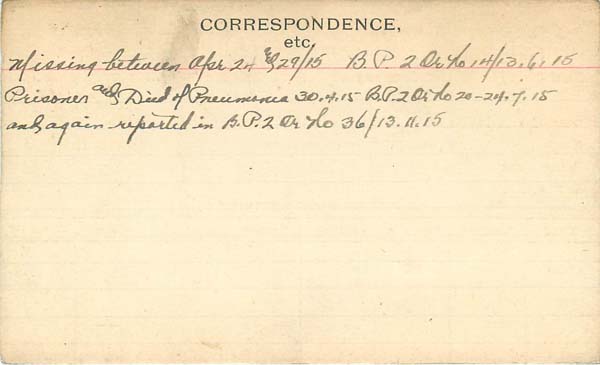 CORRESPONDENCE,
etc.
Missing between Apr 24 & 29/15 B.P. 2 Or No 14/13.6.15
Prisoner and Died of Pneumonia 30.4.15 B.P. 2 Or No 20-24.7.15
and again reported in B.P. 2 Or No 36/13.11.15